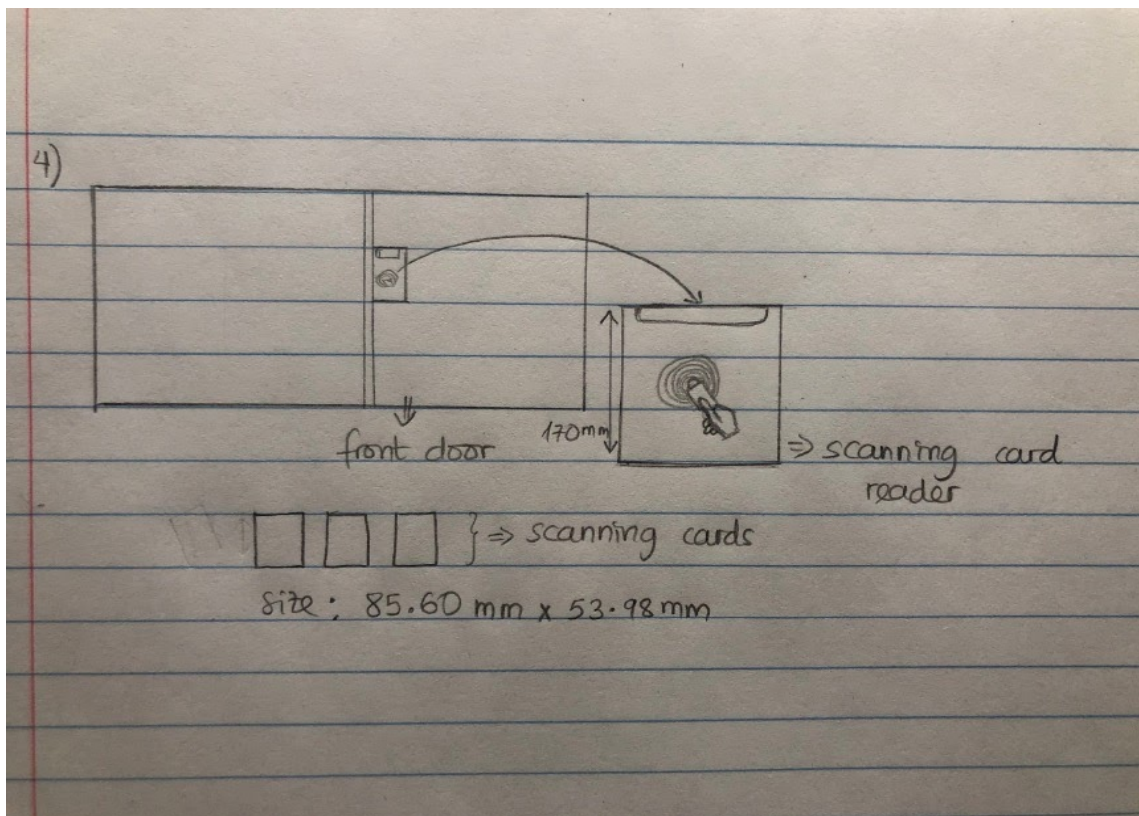 4)
front door
170mm
⇒ scanning card
reader
} ⇒ scanning cards
size: 85.60 mm x 53.98mm